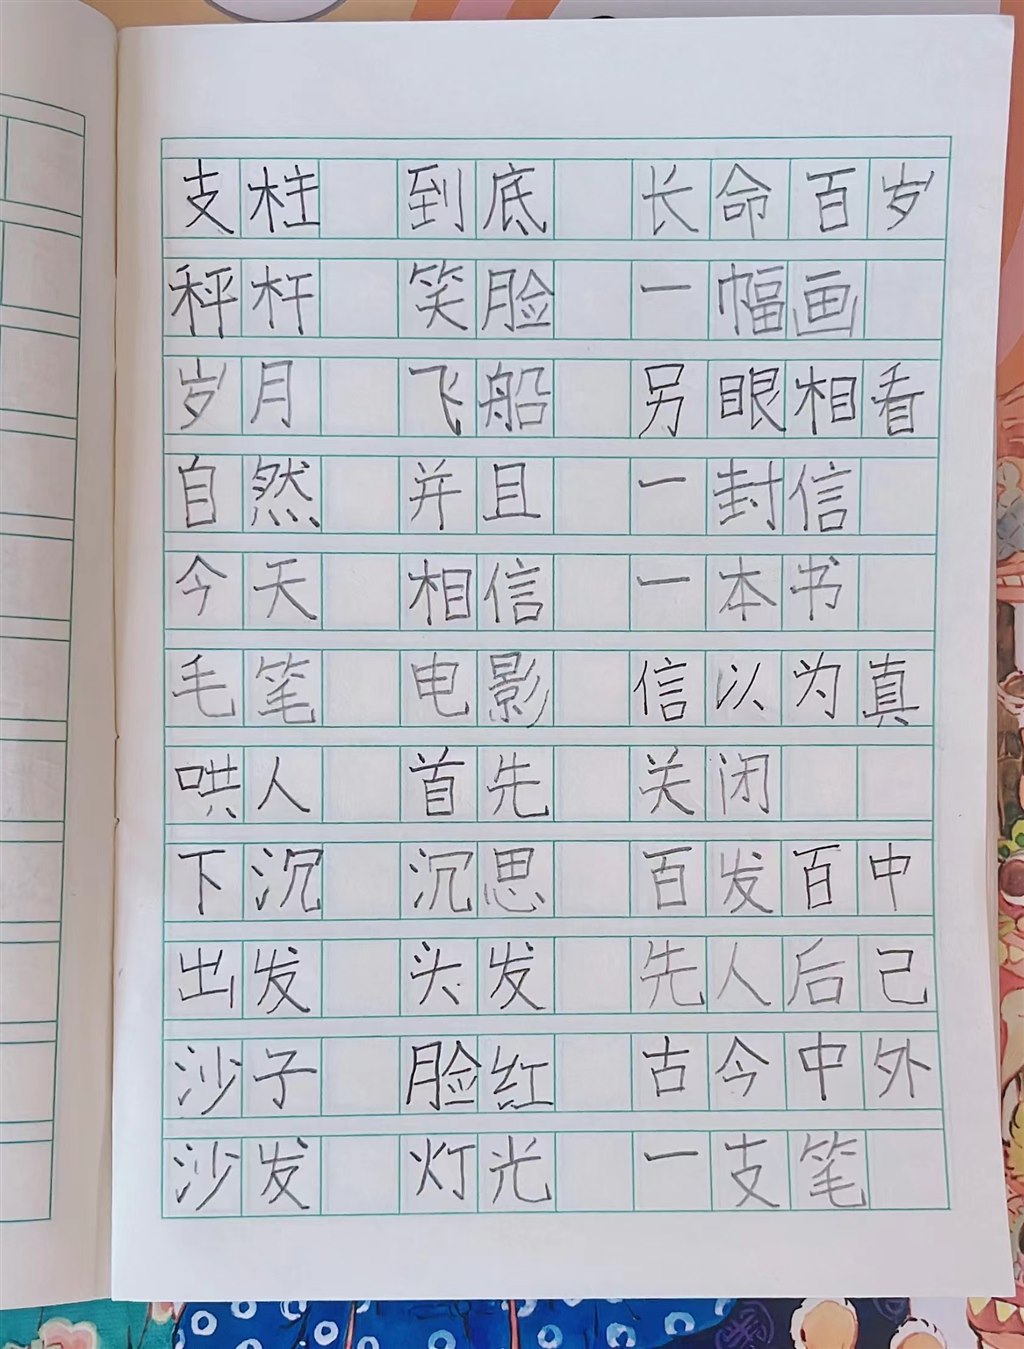 支柱 到底 长命百岁
秤杆 笑脸 一幅画
岁月 飞船 另眼相看
自然 并且 一封信
今天 相信 一本书
毛笔 电影 信以为真
哄人 首先 关闭
下沉 沉思 百发百中
出发 头发 先人后己
沙子 脸红 古今中外
沙发 灯光 一支笔